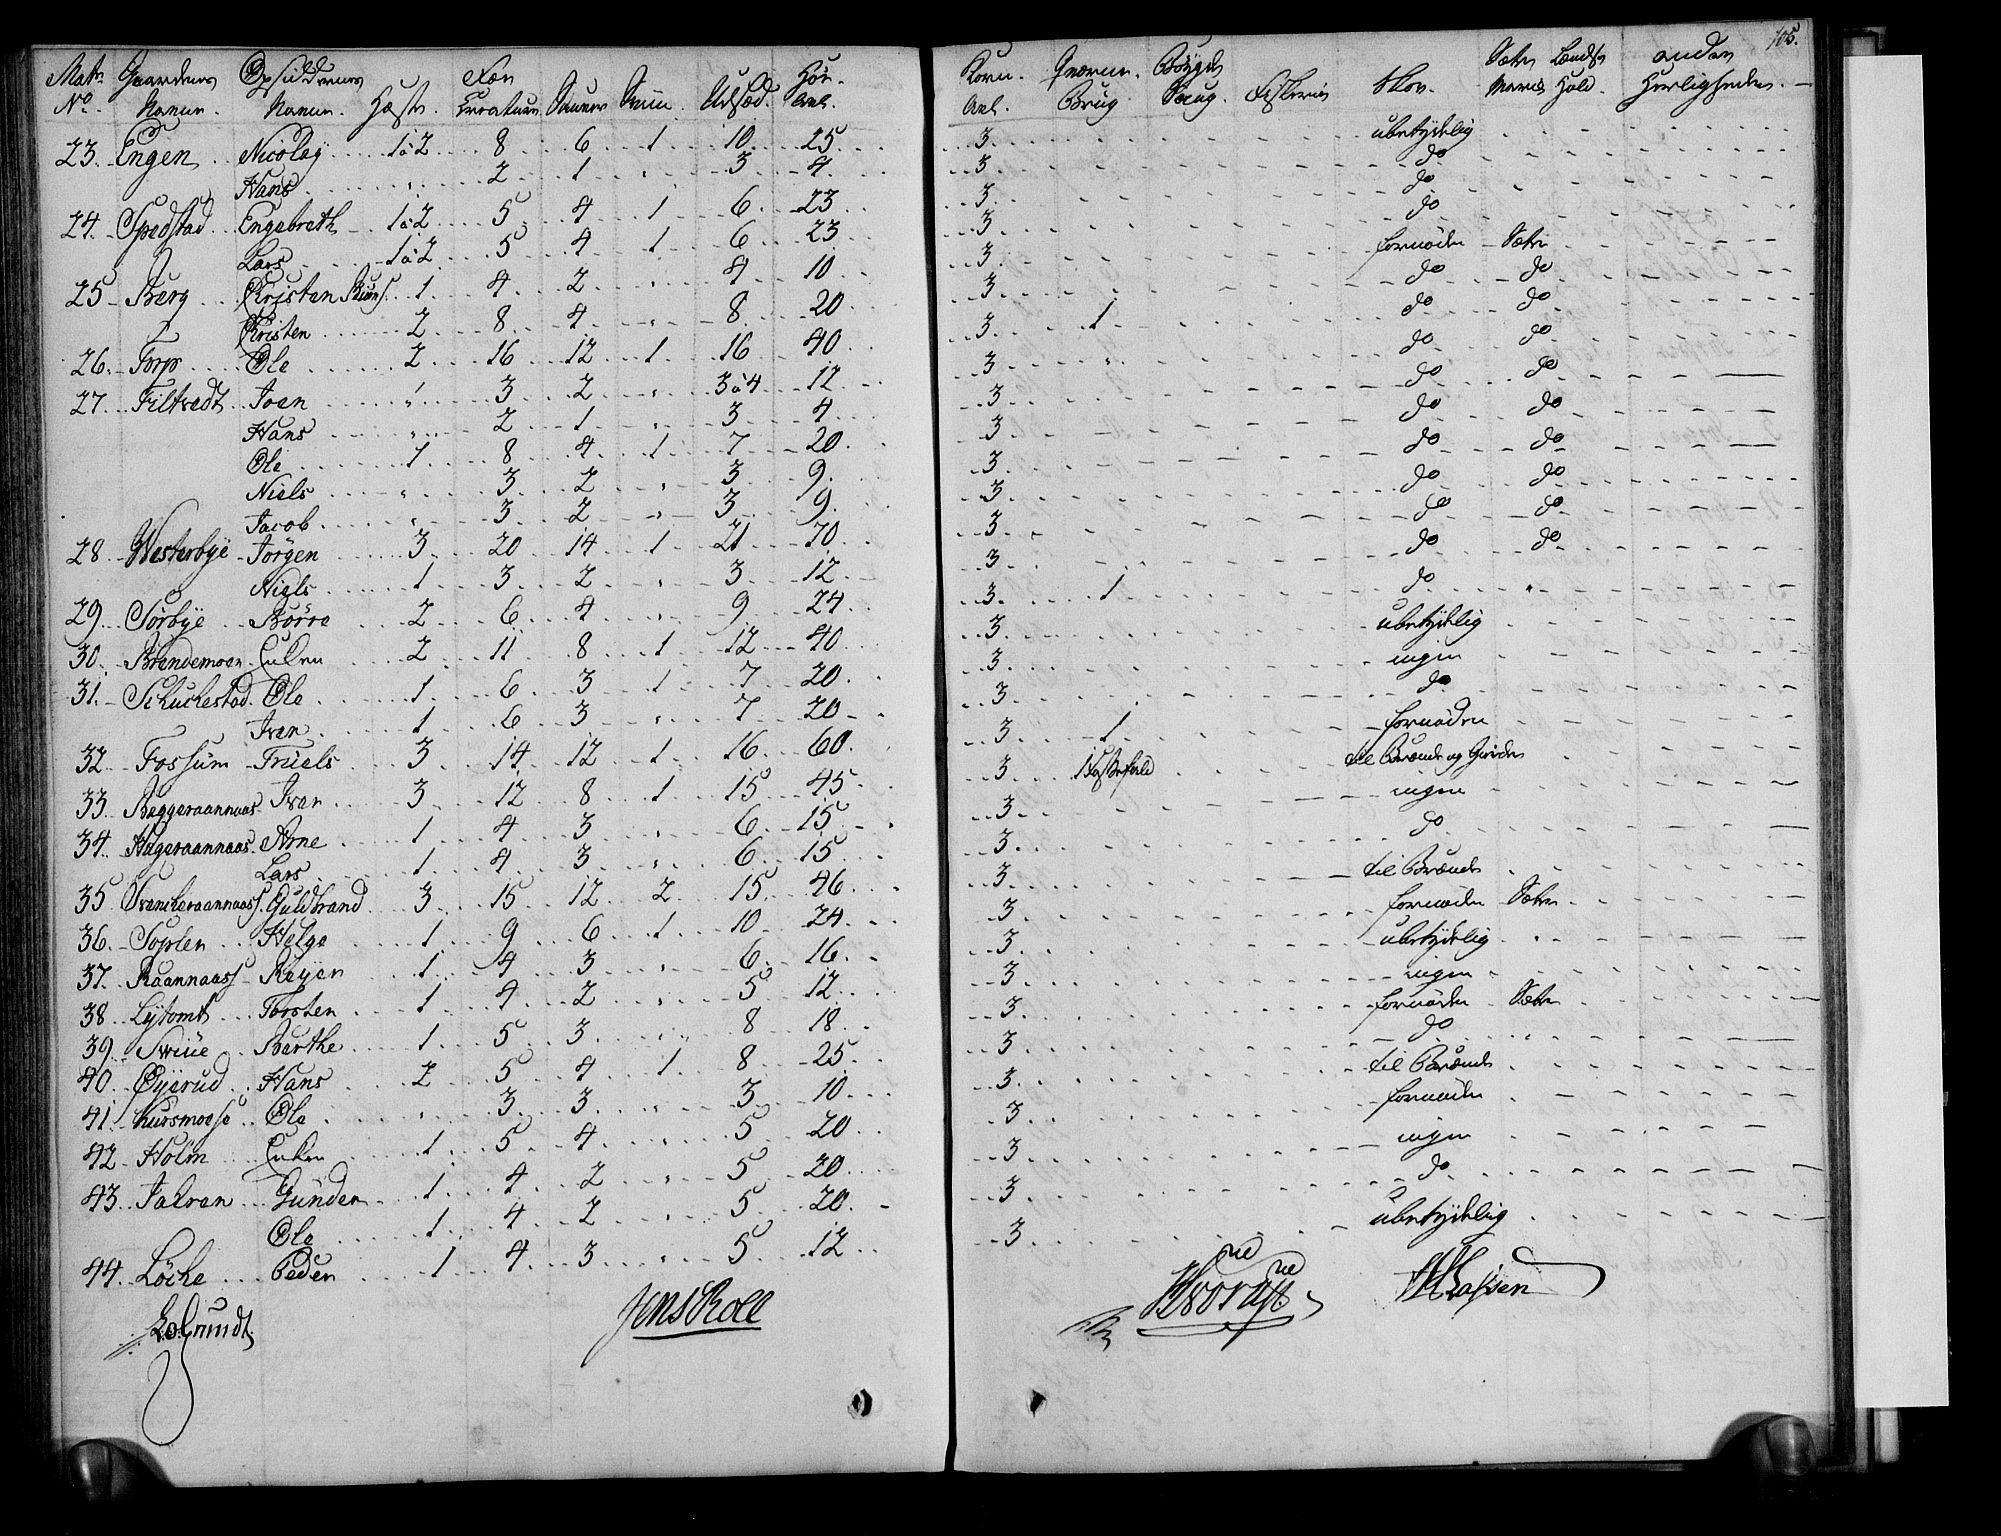 105.
Matr. Gaardenes Opsiddernes Fæe Høe-
No. Navne. Navne. Hæste. Creaturer. Sauer Sviin. Udsæd. Avl. Korn- Qværne- Bøygde Fiskerie Skov. Sæter Lands andre
Avl. Brug. Brug. Havn Hold. Herligheder.
23. Engen Nicolay 1 à 2 8 6 1 10 25 3 ubetydelig
Hans " 2 1 " 3 4 3 do
24. Spedstad Engebreth 1 à 2 5 4 1 6 23 3 do
Lars 1 à 2 5 4 1 6 23 3 do
25 Berg Cristen 1 4 2 " 4 10 3 fornøden Sæter
Cristen 2 8 4 " 8 20 3 do do
26. Torp Ole 2 16 12 1 16 40 3 1 do do
27. Filtvedt Joen " 3 2 " 3 à 4 12 3 " do do
Hans " 2 1 " 3 4 3 do do
Ole 1 8 4 1 7 20 3 do do
Niels " 3 2 " 3 9 3 do do
Jacob " 3 2 " 3 9 3 do do
28 Westerbye Jørgen 3 20 14 1 21 70 3 do do
Niels 1 3 2 " 3 12 3 do do
29. Sørbye Børre 2 6 4 " 9 24 3 1 do "
30. Brendemoen Enken 2 11 8 1 12 40 3 ubetydelig
31. Schuchestad Ole 1 6 3 1 7 20 3 ingen
Iver 1 6 3 " 7 20 3 do
32 Fossum Truels 3 14 12 1 16 60 3 1 fornøden
33 Baggeraannaas Iver 3 12 8 1 15 45 3 1 til Brænde og Gierder
34. Hageraannaas Arne 1 4 3 " 6 15 3 ingen
Lars 1 4 3 " 6 15 3 do
35 Svencheraannaass Guldbrand 3 15 12 2 15 46 3 til Brænde
36. Soplen Helge 1 9 6 1 10 24 3 fornøden Sæter
37. Raannaass Reyer 1 4 3 " 6 16 3 ubetydelig "
38 Lytomt Torsten 1 4 2 " 5 12 3 ingen
39. Swiue Barthe 1 5 3 " 8 18 3 fornøden Sæter
40. Øyerud Hans 2 5 4 1 8 25 3 do
41. Kursmose Ole " 3 3 " 3 10 3 til Brænde
42 Holm Enken 1 5 4 " 5 20 3 fornøden
43. Jalren Gunder 1 4 2 " 5 20 3 ingen
Ole 1 4 2 " 5 20 3 do
44. Løche Peder 1 4 3 " 5 12 3 ubetydelig
Grundt. Jens Roll